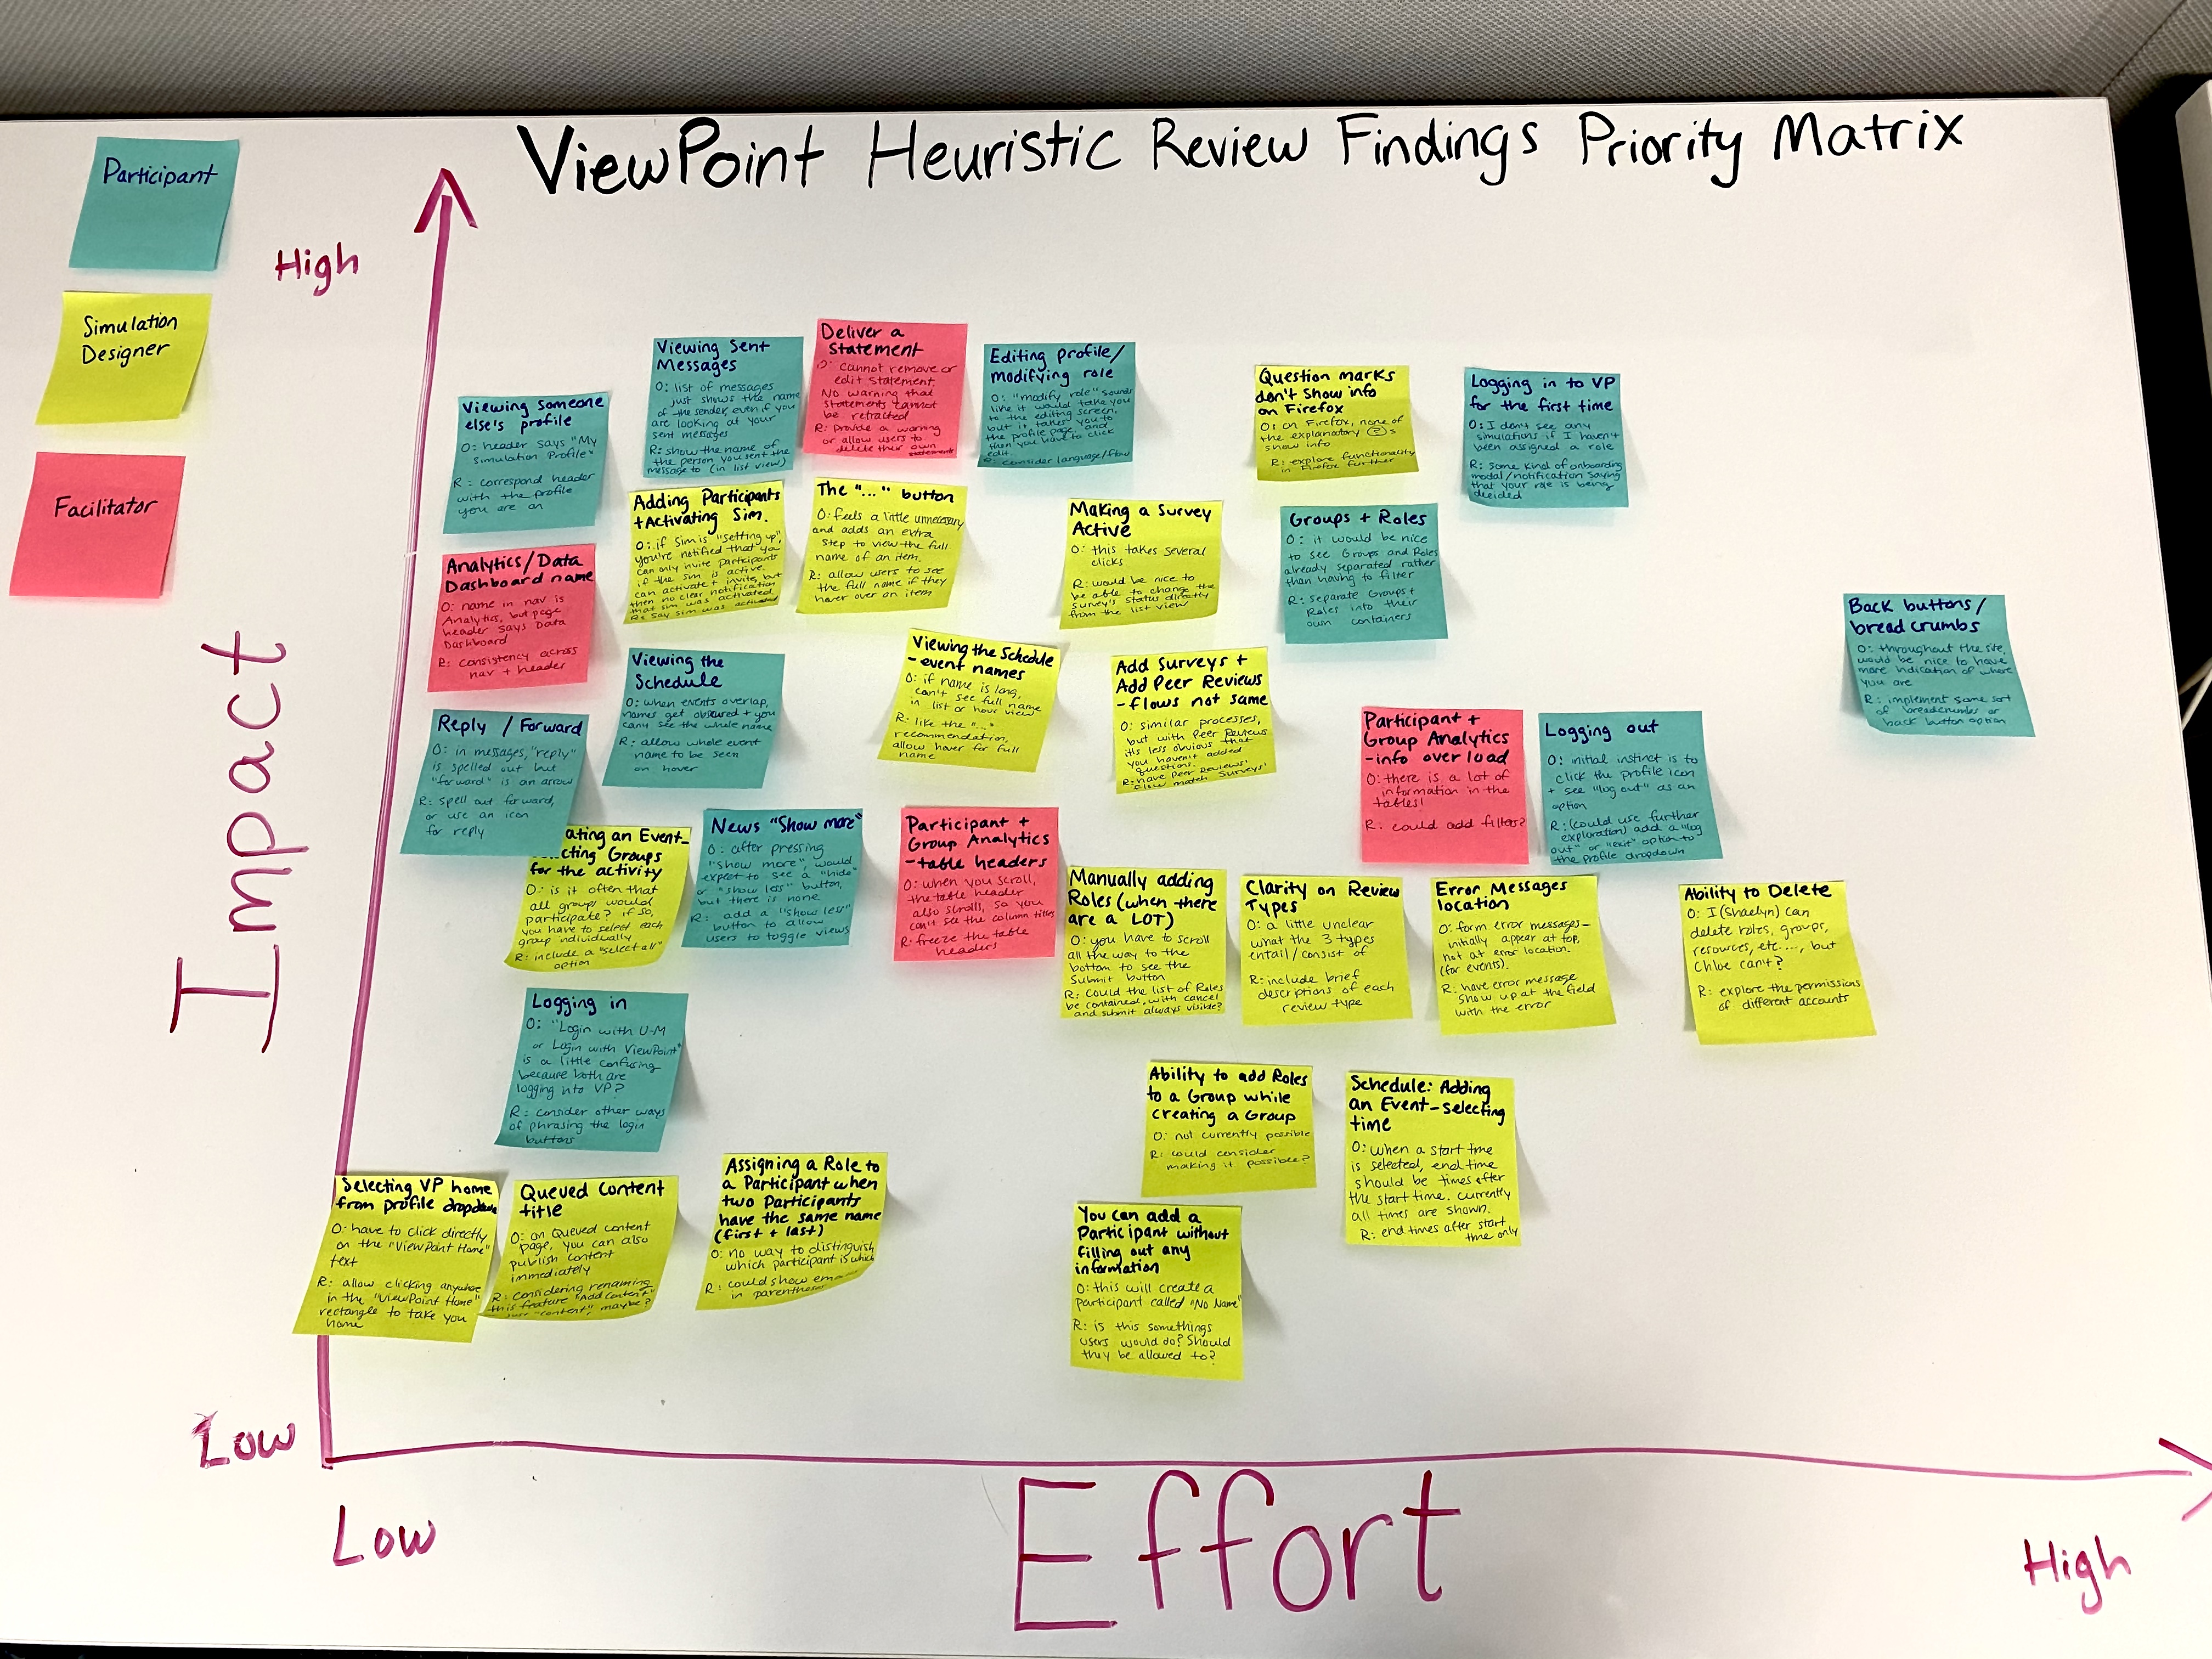 ViewPoint Heuristic Review Findings Priority Matrix
Participant
Simulation
Designer
Facilitator
High
Impact
Low
Low
Effort
High
Viewing someone
else's profile
O: header says "My
simulation Profile"
R: correspond header
with the profile
you are on
Viewing Sent
Messages
O: list of messages
just shows the name
of the sender, even if you
are looking at your
sent messages
R: show the name of
the person you sent the
message to (in list view)
Deliver a
Statement
O: cannot remove or
edit statement.
No warning that
statements cannot
be retracted
R: provide a warning
or allow users to
delete their own
statements
Editing profile/
modifying role
O: "modify role" sounds
like it would take you
to the editing screen,
but it takes you to
the profile page, and
then you have to click
edit.
R: consider language/flow
Question marks
don't show info
on Firefox
O: on Firefox, none of
the explanatory ?s
show info
R: explore functionality
in Firefox further
Logging in to VP
for the first time
O: I don't see any
simulations if I haven't
been assigned a role
R: some kind of onboarding
modal/notification saying
that your role is being
decided
Analytics/Data
Dashboard name
O: name in nav is
Analytics, but page
header says Data
Dashboard
R: consistency across
nav + header
Adding Participants
+ Activating Sim.
O: if sim is "setting up",
you're notified that you
can only invite participants
if the sim is active.
can activate + invite, but
then no clear notification
that sim was activated
R: say sim was activated
The "..." button
O: feels a little unnecessary
and adds an extra
step to view the full
name of an item.
R: allow users to see
the full name if they
hover over an item
Making a Survey
Active
O: this takes several
clicks
R: would be nice to
be able to change the
survey's status directly
from the list view
Groups + Roles
O: it would be nice
to see Groups and Roles
already separated rather
than having to filter
R: separate Groups +
Roles into their
own containers
Back buttons/
breadcrumbs
O: throughout the site,
would be nice to have
more indication of where
you are
R: implement some sort
of breadcrumbs or
back button option
Reply / Forward
O: in messages, "reply"
is spelled out but
"forward" is an arrow
R: spell out forward,
or use an icon
for reply
Viewing the
Schedule
O: when events overlap,
names get obscured + you
can't see the whole name
R: allow whole event
name to be seen
on hover
Viewing the Schedule
- event names
O: if name is long,
can't see full name
in list or hour view
R: like the "..."
recommendation,
allow hover for full
name
Add Surveys +
Add Peer Reviews
- flows not same
O: similar processes,
but with Peer Reviews
it's less obvious that
you haven't added
questions.
R: have Peer Reviews'
flow match Surveys'
Participant +
Group Analytics
- info over load
O: there is a lot of
information in the
tables!
R: could add filters?
Logging out
O: initial instinct is to
click the profile icon
+ see "log out" as an
option
R: (could use further
exploration) add a "log
out" or "exit" option to
the profile dropdown
ating an Event-
cting Groups
for the activity
O: is it often that
all groups would
participate? if so,
you have to select each
group individually
R: include a "select all"
option
News "Show more"
O: after pressing
"show more", would
expect to see a "hide"
or "show less" button,
but there is none
R: add a "show less"
button to allow
users to toggle views
Participant +
Group Analytics
- table headers
O: when you scroll,
the table header
also scrolls, so you
can't see the column titles
R: freeze the table
headers
Manually adding
Roles (when there
are a LOT)
O: you have to scroll
all the way to the
bottom to see the
Submit button
R: Could the list of Roles
be contained, with cancel
and submit always visible?
Clarity on Review
Types
O: a little unclear
what the 3 types
entail/consist of
R: include brief
descriptions of each
review type
Error Messages
location
O: form error messages-
initially appear at top,
not at error location.
(for events).
R: have error message
show up at the field
with the error
Ability to Delete
O: I (Shaelyn) can
delete roles, groups,
resources, etc...., but
Chloe can't?
R: explore the permissions
of different accounts
Logging in
O: "Login with U-M
or Login with ViewPoint"
is a little confusing
because both are
logging into VP?
R: consider other ways
of phrasing the login
buttons
Ability to add Roles
to a Group while
creating a Group
O: not currently possible
R: could consider
making it possible?
Schedule: Adding
an Event-selecting
time
O: when a start time
is selected, end time
should be times after
the start time. currently
all times are shown.
R: end times after start
time only
Selecting VP home
from profile dropdown
O: have to click directly
on the "ViewPoint Home"
text
R: allow clicking anywhere
in the "ViewPoint Home"
rectangle to take you
home
Queued Content
title
O: on Queued content
page, you can also
publish content
immediately
R: considering renaming
this feature "Add Content"
just "content", maybe?
Assigning a Role to
a Participant when
two Participants
have the same name
(first + last)
O: no way to distinguish
which participant is which
R: could show
in
You can add a
Participant without
filling out any
information
O: this will create a
participant called "No Name"
R: is this somethings
users would do? Should
they be allowed to?